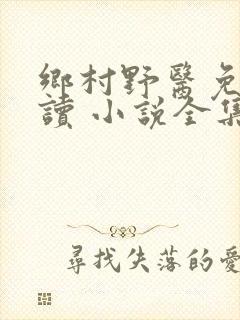 鄉村野醫免
讀 小說全集
尋找失落的愛